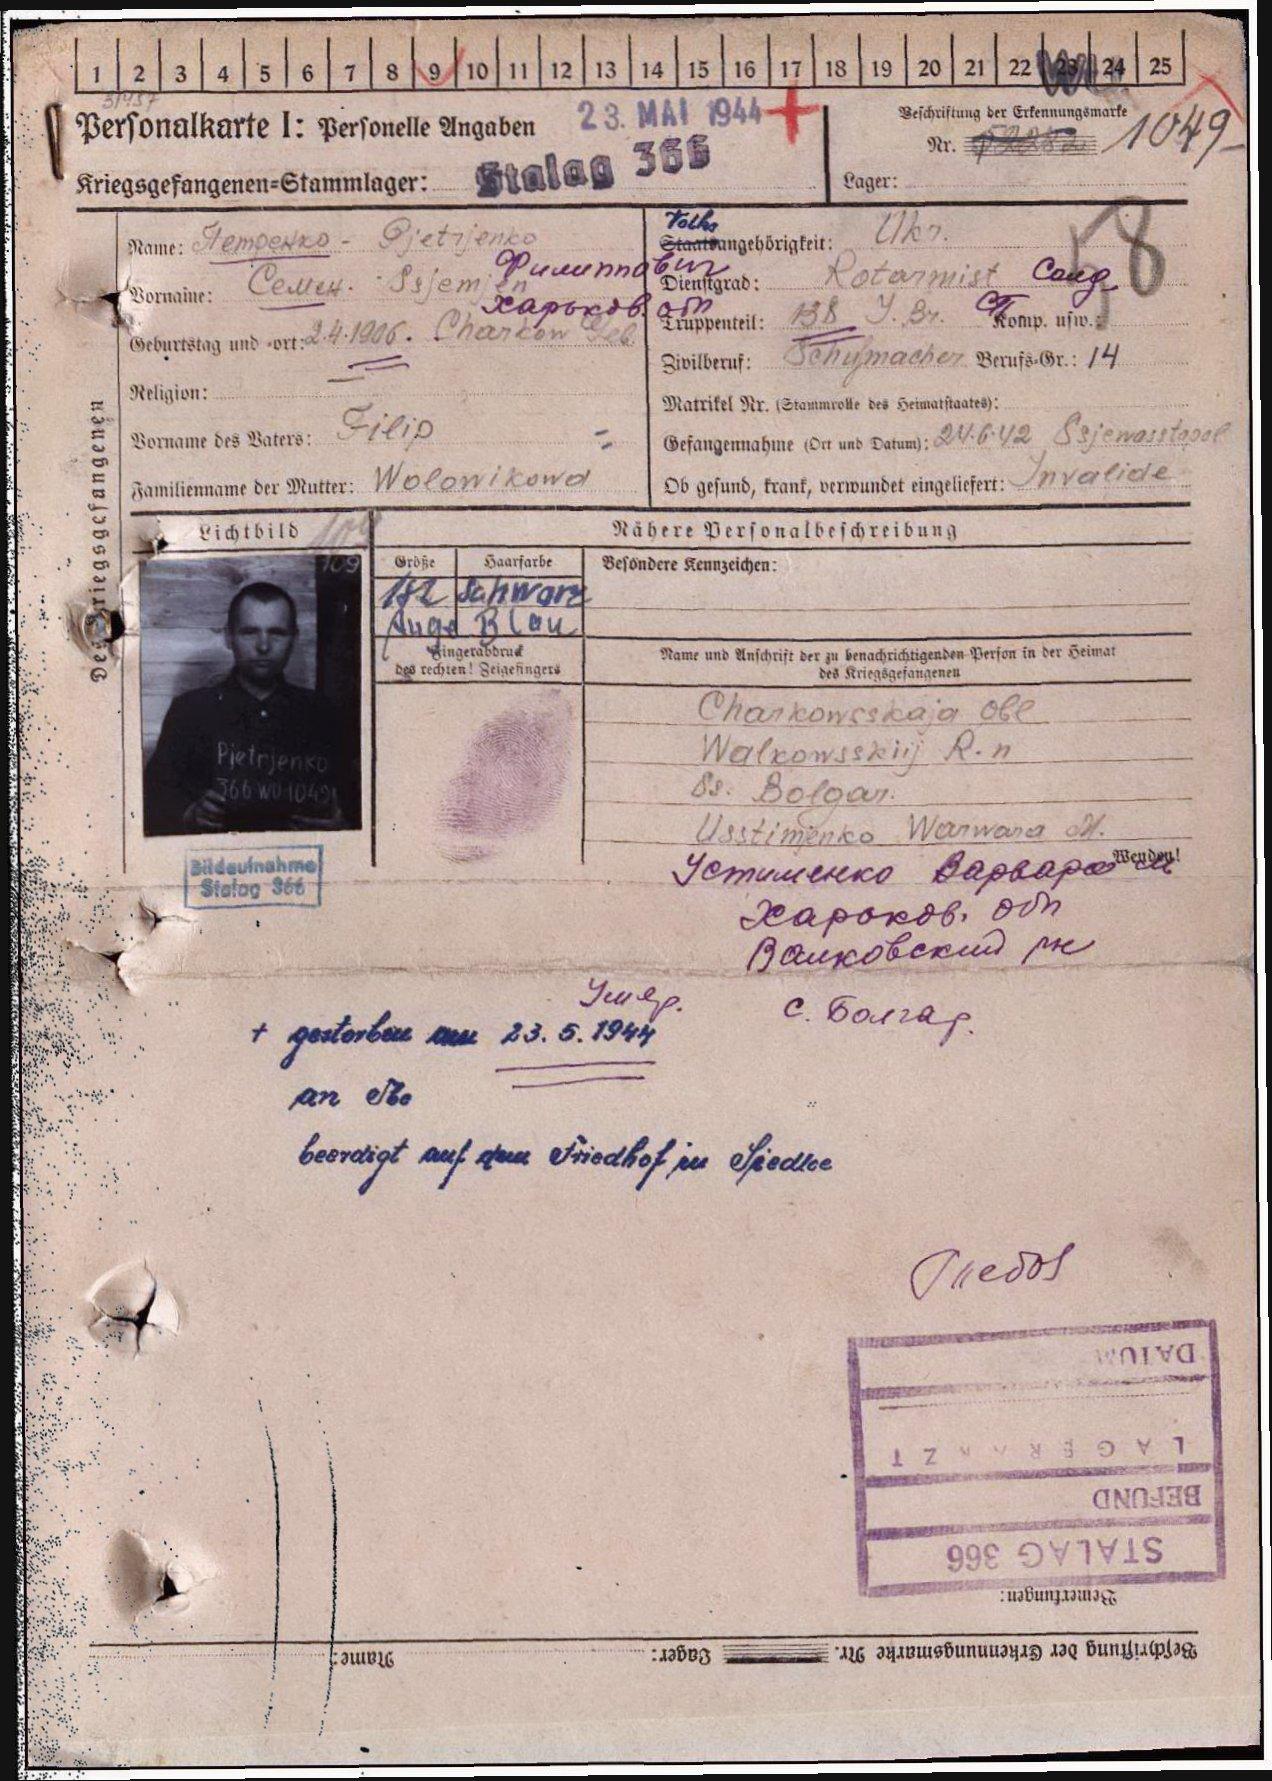 1 2 3 4 5 6 7 8 9 10 11 12 13 14 15 16 17 18 19 20 21 22 23 24 25
Personalkarte I: Personelle Angaben
23. MAI 1944
Beschriftung der Erkennungsmarke
Nr. 1049
Kriegsgefangenen=Stammlager: Stalag 366
Lager:
Des Kriegsgefangenen
Name: Петренко - Pjetrjenko
Филиппович
Vorname: Семен. Ssjemjen
Харьков. обл
Geburtstag und -ort: 2.4.1906. Charkow Geb
Religion:
Vorname des Vaters: Filip
Familienname der Mutter: Wolowikowa
Volks
Staatsangehörigkeit: Ukr.
58
Dienstgrad: Rotarmist Солд
Truppenteil: 138 J. Br. Komp. usw.:
Zivilberuf: Schuhmacher Berufs=Gr.: 14
Matrikel Nr. (Stammrolle des Heimatstaates):
Gefangennahme (Ort und Datum): 24.6.42 Ssjewasstopol
Ob gesund, krank, verwundet eingeliefert: Invalide
Lichtbild
109
Pjetrjenko
366 WO 1049
Bildaufnahme
Stalag 366
Nähere Personalbeschreibung
Größe Haarfarbe Besondere Kennzeichen:
182 Schwarz
Auge Blau
Fingerabdruck
des rechten! Zeigefingers
Name und Anschrift der zu benachrichtigenden Person in der Heimat
des Kriegsgefangenen
Charkowsskaja Obl
Walkowsskij R-n
Ss. Bolgar.
Usstimenko Warwara M.
Wenden!
Устименко Варвара М
Харьков. обл
Валковский рн
с. Болгар.
Умер.
+ gestorben am 23.5.1944
an Tbc
beerdigt auf dem Friedhof in Siedlce
DATUM
LAGERARZT
BEFUND
STALAG 366
Bemerkungen:
Beschriftung der Erkennungsmarke Nr. Lager: Name: